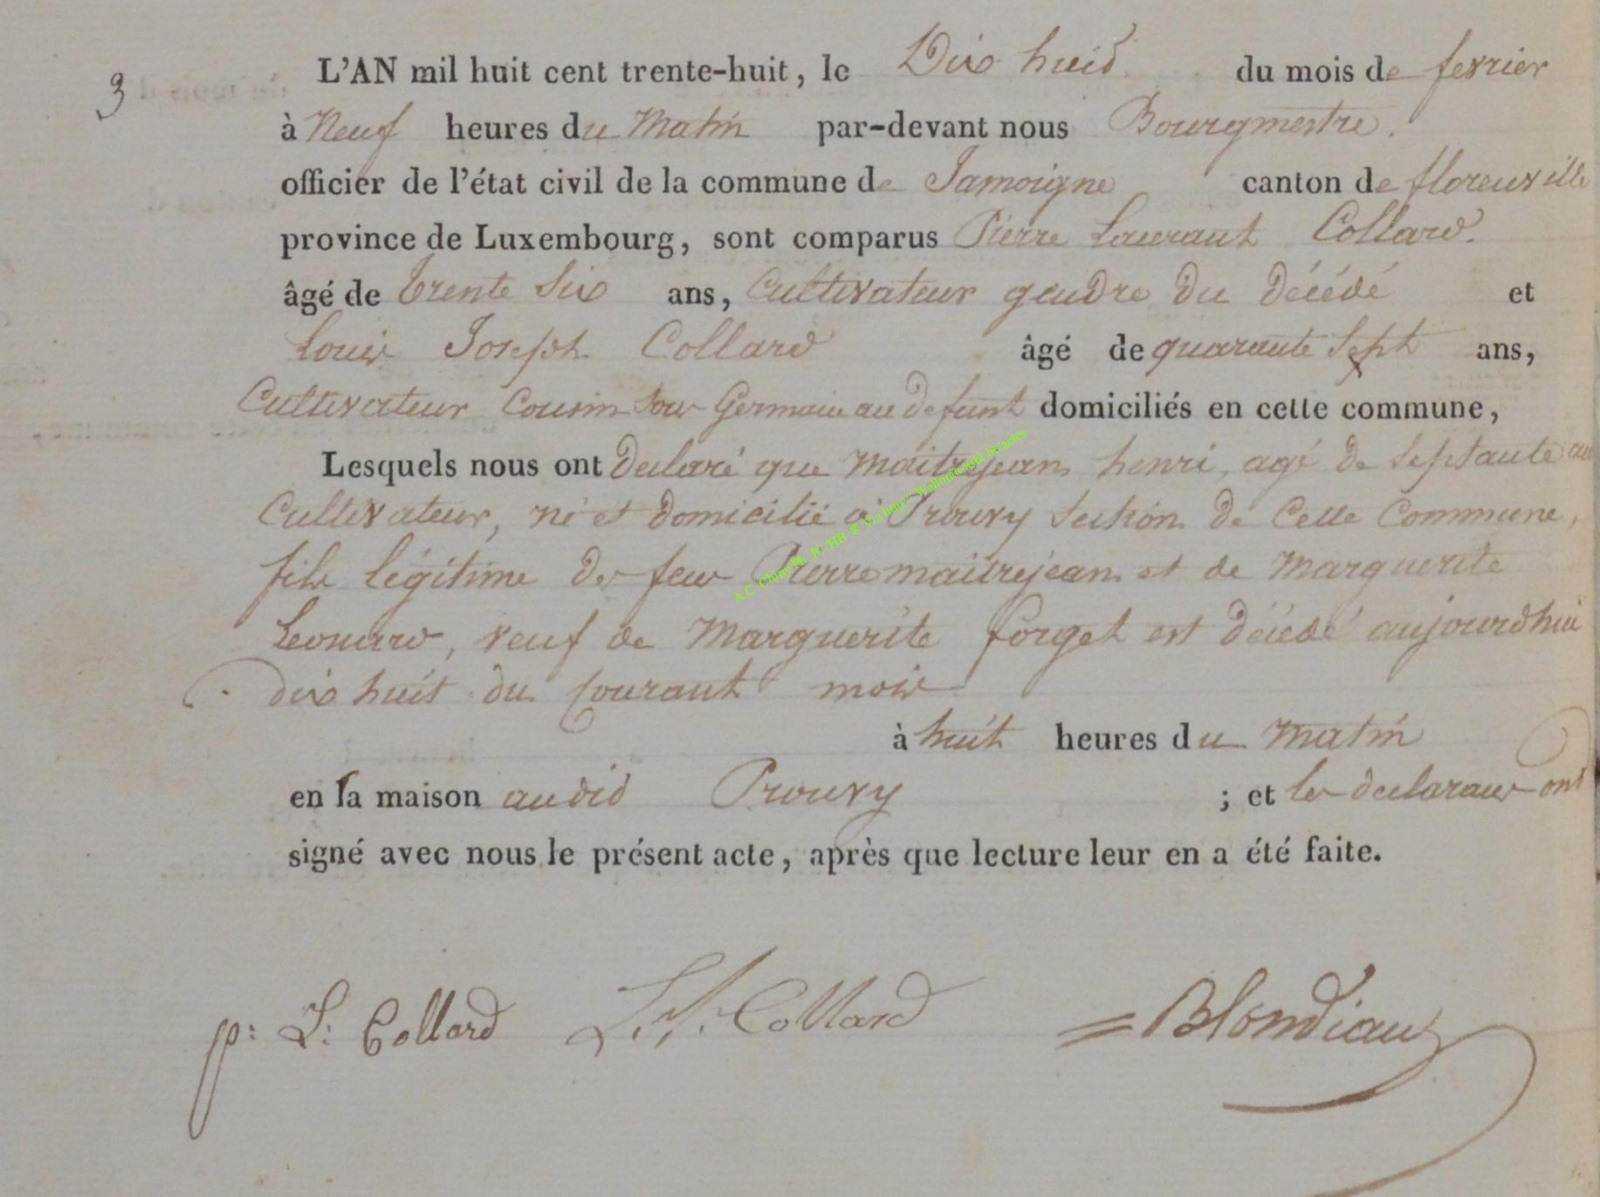 3
L'AN mil huit cent trente-huit, le Dix huid du mois de fevrier
à Neuf heures du Matin par-devant nous Bourgmestre.
officier de l'état civil de la commune de Jamoigne canton de florenville
province de Luxembourg, sont comparus Pierre Laurant Collard.
âgé de trente Six ans, Cultivateur gendre du décédé et
Louis Joseph Collard âgé de quarante Sept ans,
Cultivateur Cousin Germain au defunt domiciliés en cette commune,
Lesquels nous ont declaré que Maitrejean henri, agé de Septante
Cultivateur, né et domicilié à Prouvy Section de Cette Commune,
fils légitime de feu Pierre maitrejean et de Marguerite
Leonard, veuf de Marguerite forget est décédé aujourdhui
dix huit du Courant mois
à huit heures du Matin
en la maison audid Prouvy ; et les declarans ont
signé avec nous le présent acte, après que lecture leur en a été faite.
p: L: Collard L. J. Collard = Blondiau